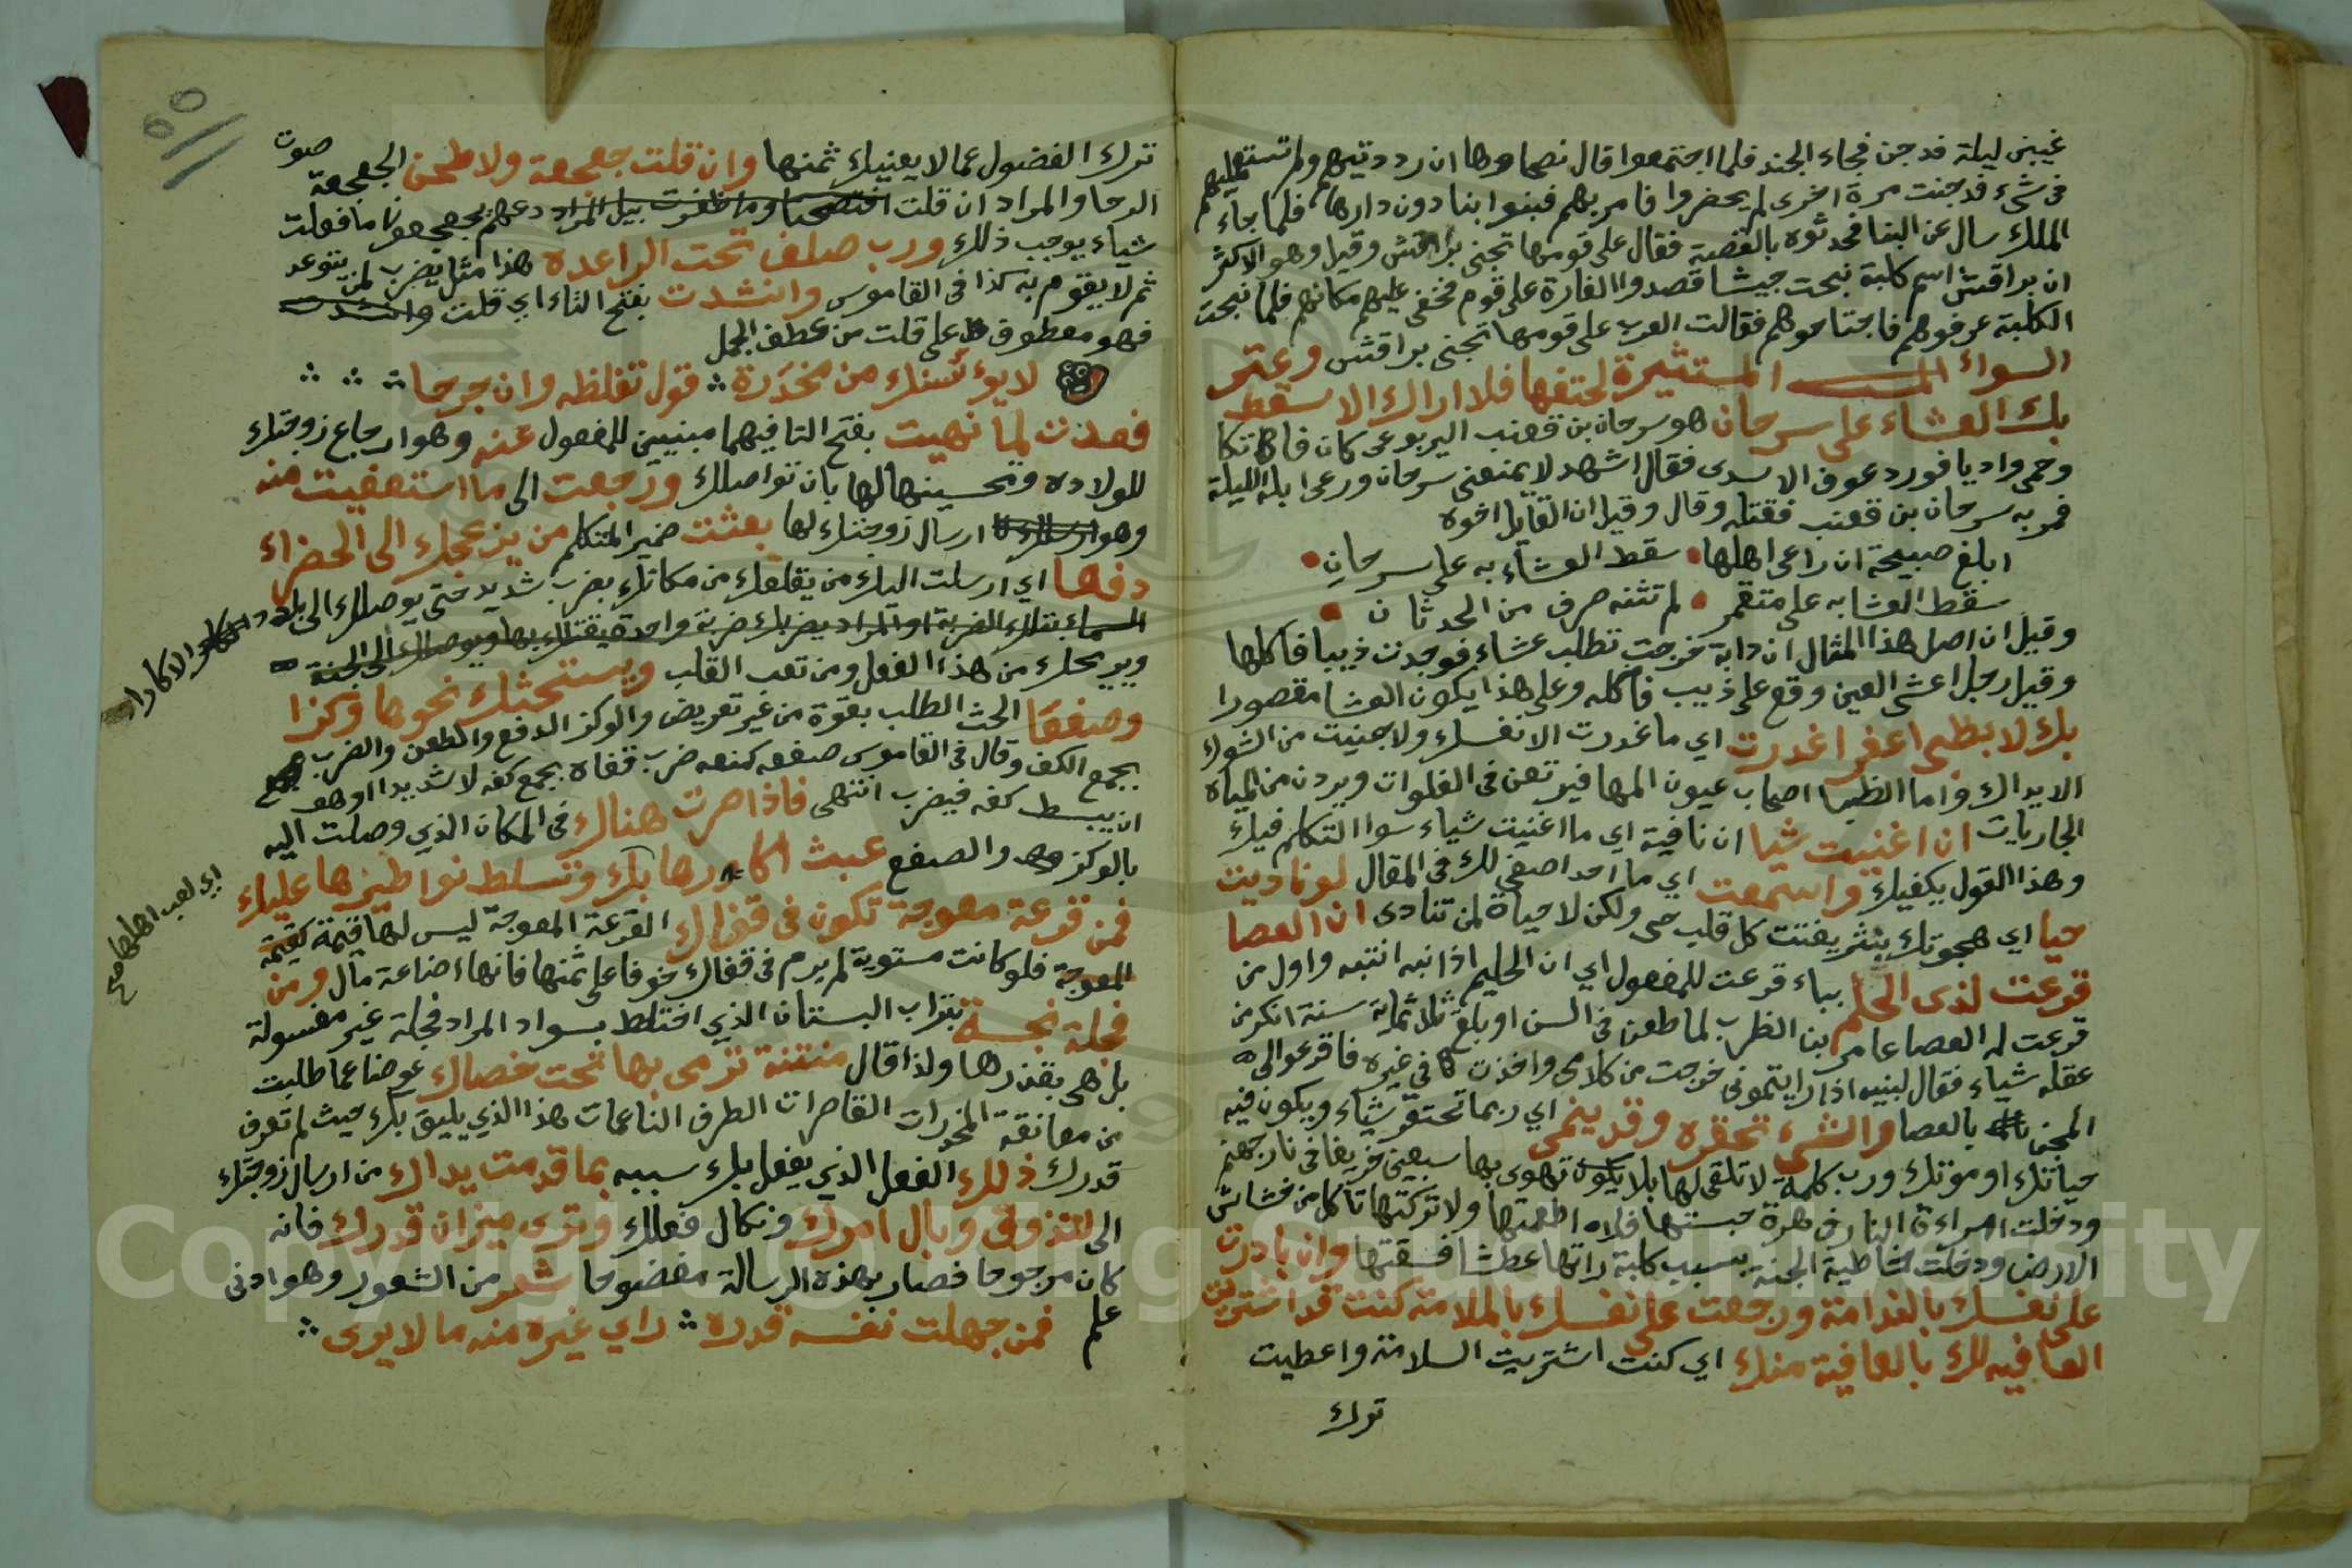 غيبنى ليلة فدجن فجاء الجند فلما اجتمعوا قال نصحاوها ان رددتيهم ولم تستعمليهم
فى شىء فدجنت مرة اخرى لم يحضروا فامر بهم فبنوا بنا دون دارها فلما جاء
الملك سال عن البنا فحدثوه بالقصة فقال على قومها تجنى براقش وقيل وهو الاكثر
ان براقش اسم كلبة نبحت جيشا قصدوا الغارة على قوم فخفى عليهم مكانهم فلما نبحت
الكلبة عرفوهم فاجتاحوهم فقالت العرب على قومها تجنى براقش وعنز
السواء المستثيرة لحتفها فلا اراك الا سقط
بك العشاء على سرحان هو سرحان بن قعنب اليربوعى كان فاتكا
وحمى واديا فورد عوف الاسدى فقال اشهد لا يمنعنى سرحان ورعى ابله الليلة
فمر به سرحان بن قعنب فقتله وقال وقيل ان القايل اخوه
ابلغ صبيحة ان راعى اهلها سقط العشاء به على سرحان
سقط العشا به على متقمر لم تثنه صرف من الحدثان
وقيل ان اصل هذا المثال ان دابة خرجت تطلب عشاء فوجدت ذيبا فاكلها
وقيل رجل اعشى العين وقع على ذيب فاكله وعلى هذا يكون العشا مقصورا
بك لا بظبى اعفر اغدرت اي ما غدرت الا نفسك ولا جنيت من الشوك
الا يداك واما الظبا اصحاب عيون المها فيرتعن فى الفلوات ويردن من المياه
الجاريات ان اغنيت شيا ان نافية اي ما اغنيت شياء سوا التكلم فيك
وهذا القول يكفيك واسمعت اي ما احد اصغى لك فى المقال لو ناديت
حيا اي هجوتك بنثر يفتت كل قلب حى ولكن لا حياة لمن تنادى ان العصا
قرعت لذى الحلم ببناء قرعت للمفعول اي ان الحليم اذا نبه انتبه واول من
قرعت له العصا عامر بن الظرب لما طعن فى السن او بلغ ثلاثماية سنة انكر من
عقله شياء فقال لبنيه اذا رايتمونى خرجت من كلامى واخذت فى غيره فاقرعوا لى
المجن بالعصا والشىء تحقره وقد ينمى اي ربما تحتقر شياء ويكون فيه
حياتك او موتك ورب كلمة لا تلقى لها بالا يكون تهوى بها سبعين خريفا فى نار جهنم
ودخلت امراءة النار فى هرة حبستها فلا اطعمتها ولا تركتها تاكل من خشاش
الارض ودخلت خاطية الجنة بسبب كلبة راتها عطشا فسقتها وان بادرت
على نفسك بالندامة ورجعت على نفسك بالملامة كنت قد اشتريت
العافيه لك بالعافية منك اي كنت اشتريت السلامة واعطيت
ترك
ترك الفضول عما لا يعنيك ثمنها وان قلت جعجعة ولا طحن الجعجعة صوت
الرحا والمراد ان قلت دعهم يجعجعونا ما فعلت
شياء يوجب ذلك ورب صلف تحت الراعدة هذا مثل يضرب لمن يتوعد
ثم لا يقوم به كذا فى القاموس وانشدت بفتح التاء اي قلت
فهو معطوف على قلت من عطف الجمل
لا يوئسنك من مخدرة قول تغلظه وان جرحا
فعدت لما نهيت بفتح التا فيهما مبنيين للمفعول عنه وهو ارجاع زوجتك
للولاده وتحسينها لها بان تواصلك ورجعت الى ما استعفيت منه
وهو ارسال زوجتك لها بعثت ضمير المتكلم من يزعجك الى الخضراء
دفعا اي ارسلت اليك من يقلعك من مكانك بضرب شديد حتى يوصلك الى بلد
ويريحك من هذا الفعل ومن تعب القلب ويستحثك نحوها وكزا
وصفعا الحث الطلب بقوة من غير تعريض والوكز الدفع والطعن والضرب
بجمع الكف وقال فى القاموس صفعه كمنعه ضرب قفاه بجمع كفه لا شديدا او هو
ان يبسط كفه فيضرب انتهى فاذا صرت هناك فى المكان الذي وصلت اليه
بالوكز والصفع عبث اكارها بك وتسلط نواطيرها عليك
اي لعب اهلها
فمن قرعة معوجة تكون فى قفاك القرعة المعوجة ليس لها قيمة كقيمة
المعوجة فلو كانت مستوية لم يرم فى قفاك خوفا على ثمنها فانها اضاعة مال ومن
فجلة نجسة بتراب البستان الذي اختلط بسواد المراد فجلة غير مغسولة
بل هى بقذرها ولذا قال منتنة ترمى بها تحت خصاك عوضا عما طلبت
من معانقة المخدرات القاصرات الطرف الناعمات هذا الذي يليق بك حيث لم تعرف
قدرك ذلك الفعل الذي يفعل بك سببه بما قدمت يداك من ارسال زوجتك
الى لتذوق وبال امرك ونكال فعلك وترى ميزان قدرك فانه
كان مرجوحا فصار بهذه الرسالة مفضوحا شعر من الشعور وهو ادنى
علم فمن جهلت نفسه قدره راي غيره منه ما لا يرى
Copyright © King Saud University